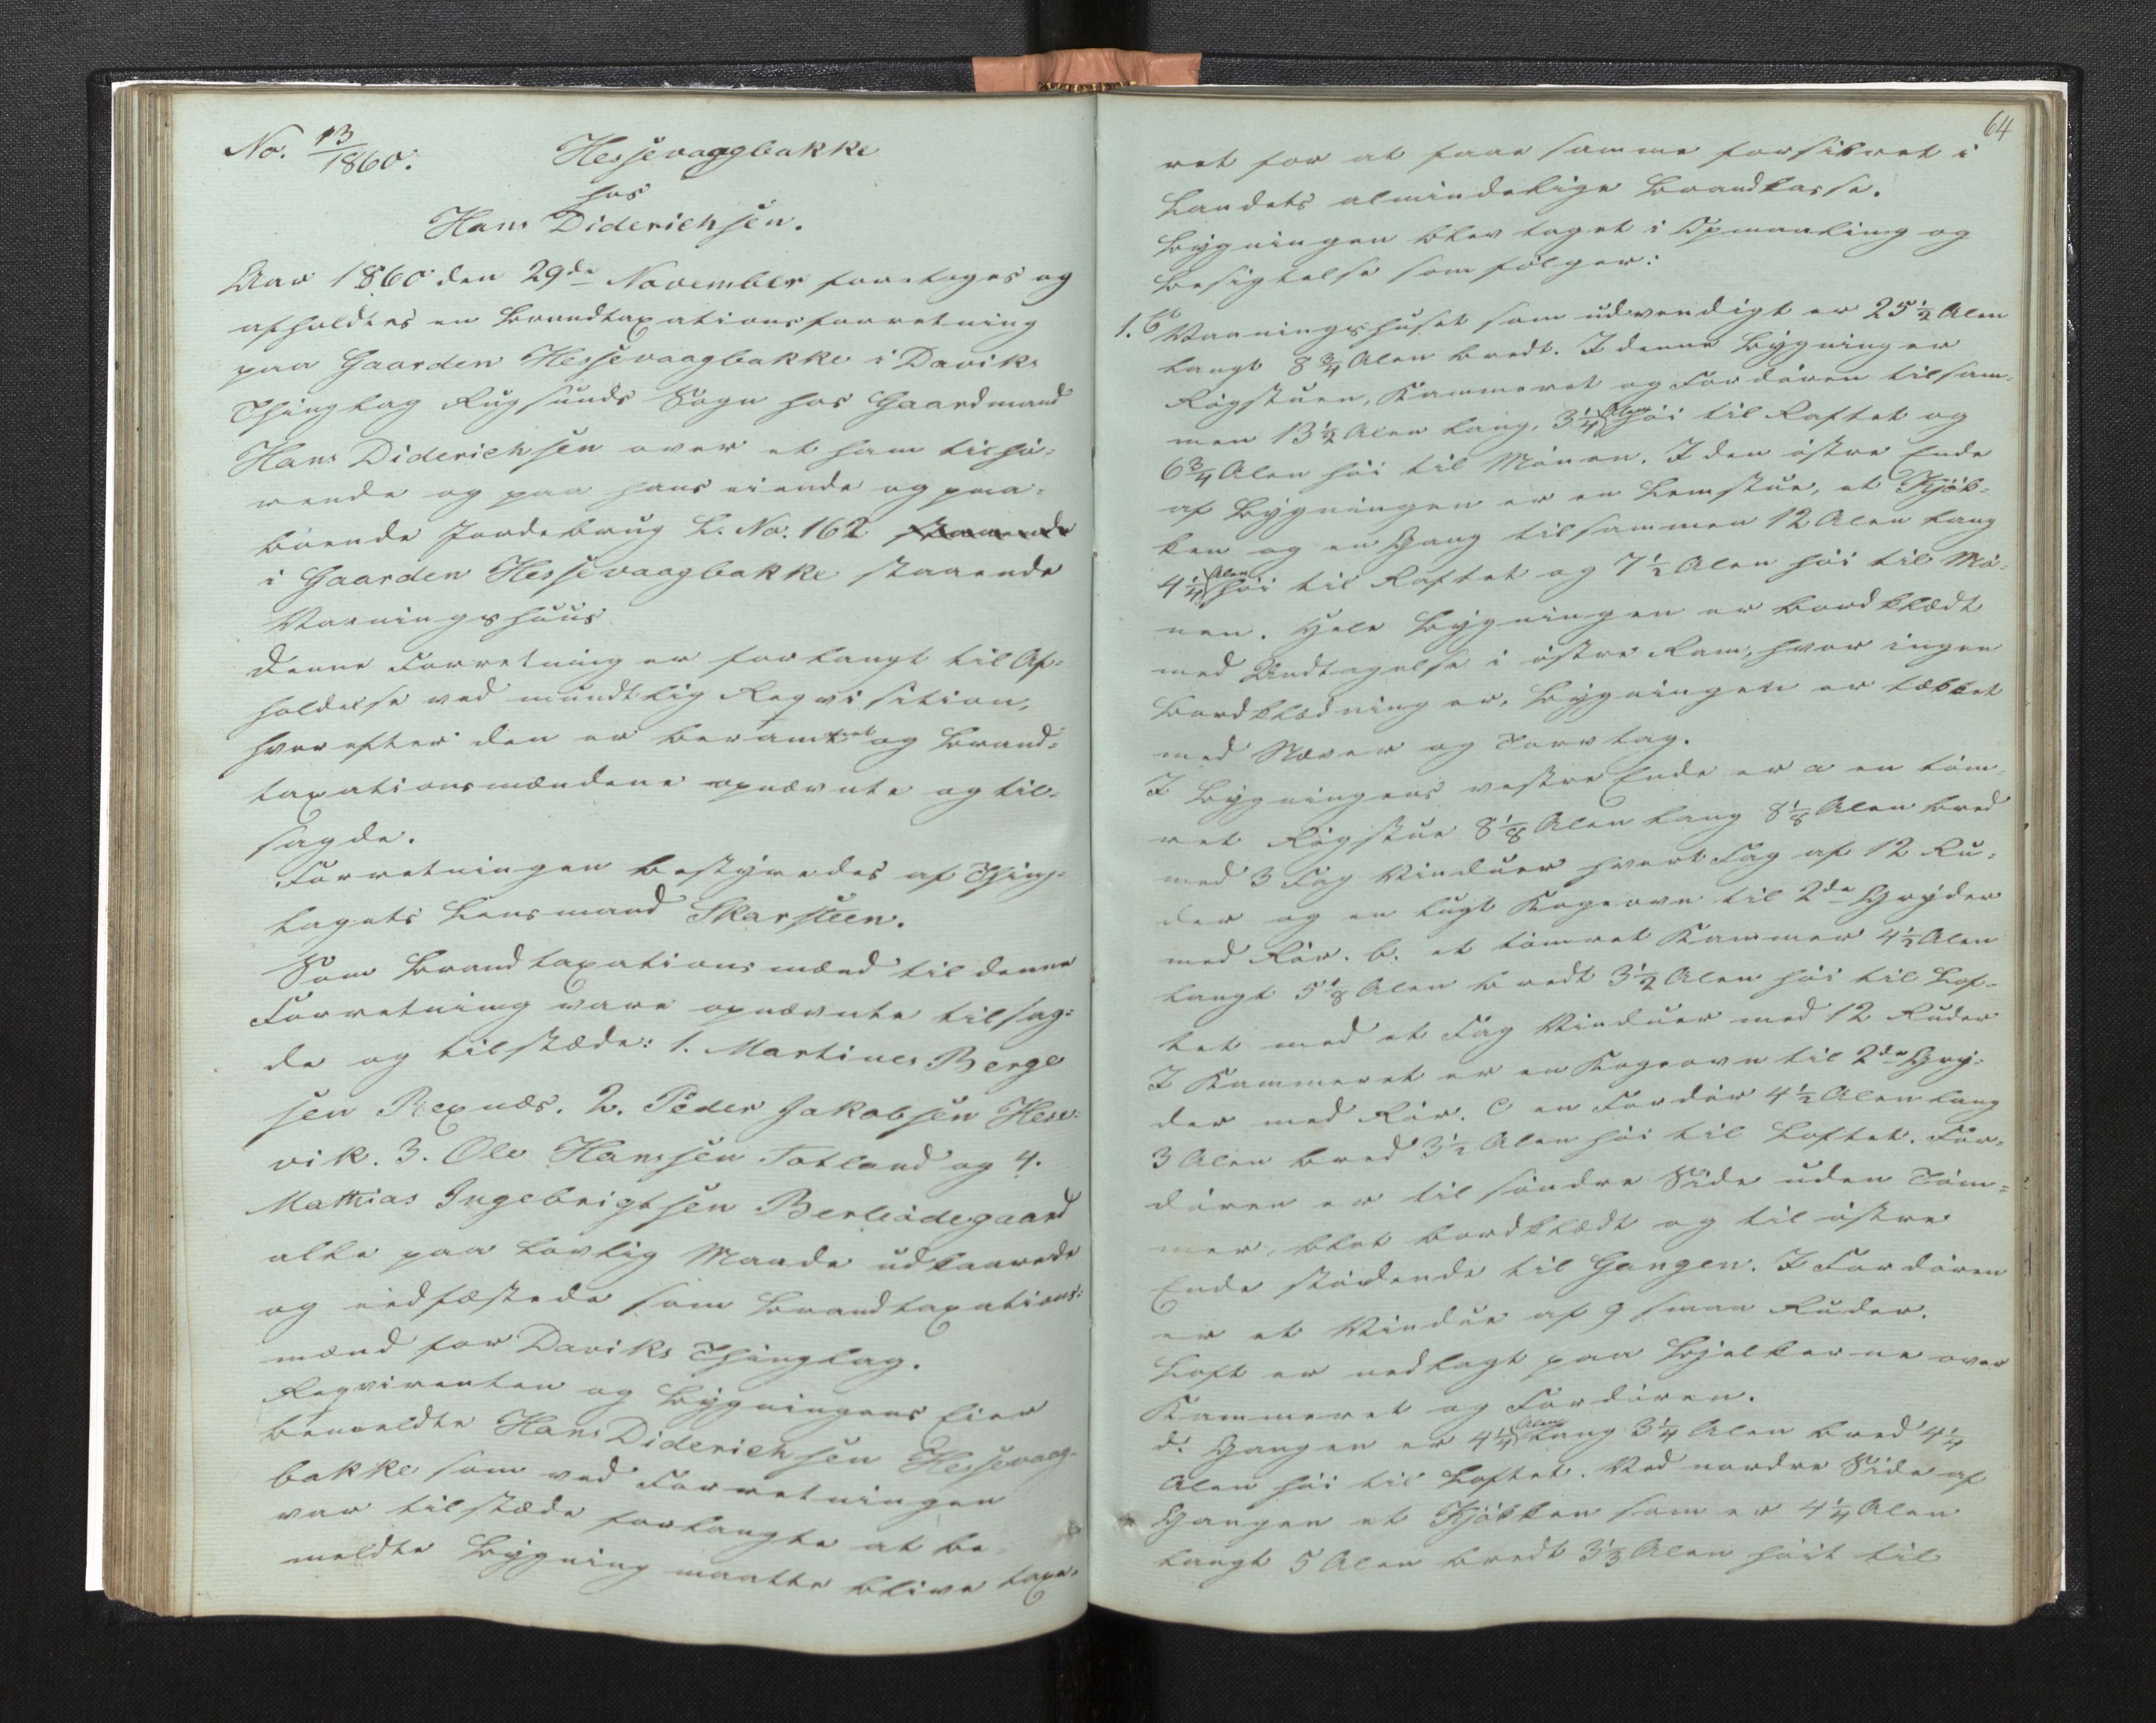 No. 13/1860.
Hessevaagbakke
hos
Hans Diderichsen.
Aar 1860 den 29de November foretoges og
afholdtes en Brandtaxationsforretning
paa Gaarden Hessevaagbakke i Daviks
Thinglag Rugsunds Sogn hos Gaardmand
Hans Diderichsen over et ham tilhø=
rende og paa hans eiende og paa=
boende Jordebrug L. No. 162 staaende
i Gaarden Hessevaagbakke staaende
Vaaningshuus
Denne Forretning er forlangt til Af=
holdelse ved mundtlig Reqvisition,
hvorefter den er berammet og Brand=
taxationsmændene opnævnte og til=
sagde.
Forretningen bestyredes af Thing=
lagets Lensmand Skarsteen.
Som Brandtaxationsmænd til denne
Forretning vare opnævnte tilsag=
de og tilstæde: 1. Martines Berge
sen Rexnæs. 2. Peder Jakobsen Hese=
vik. 3. Ole Hanssen Totland og 4.
Mathias Ingebrigtsen Berleødegaard
alle paa lovlig Maade udkaarede
og eedfæstede som Brandtaxations=
mænd for Daviks Thinglag.
Reqvirenten og Bygningens Eier
bemeldte Hans Diderichsen Hessevaag=
bakke som ved Forretningen
var tilstæde forlangte at be=
meldte Bygning maatte blive taxe=
64
ret for at faae samme forsikret i
Landets almindelige Brandkasse.
Bygningen blev taget i Opmaaling og
Besigtelse som følger:
1. Vaaningshuset som udvendigt er 25½ Alen
langt 8¾ Alen bredt. I denne Bygning er
Røgstuen, Kammeret og Fordøren tilsam=
men 13½ Alen lang, 3¼ Alen høi til Raftet og
6¾ Alen høi til Mønen. I den østre Ende
af Bygningen er en Lemstue, et Kjøk=
ken og en Gang tilsammen 12 Alen lang
4¼ Alen høi til Raftet og 7½ Alen høi til Mø=
nen. Hele Bygningen er bordklædt
med Undtagelse i østre Ram, hvor ingen
Bordklædning er, Bygningen er tækket
med Næver og Torvtag.
I Bygningens vestre Ende er a en tøm=
ret Røgstue 8⅛ Alen lang 8⅛ Alen bred
med 3 Fag Vinduer hvert Fag af 12 Ru=
der og en lugt Kogeovn til 2de Gryder
med Rør. b. et tømret Kammer 4½ Alen
langt 5⅛ Alen bredt 3½ Alen høi til Lof=
tet med et Fag Vinduer med 12 Ruder
I Kammeret er en Kogeovn til 2de Gry=
der med Rør. c en Fordør 4½ Alen lang
3 Alen bred 3½ Alen høi til Loftet. For=
døren er til søndre Side uden Tøm=
mer, blot bordklædt og til østre
Ende stødende til Gangen. I Fordøren
er et Vindue af 9 smaa Ruder.
Loft er nedlagt paa Bjelkerne over
Kammeret og Fordøren.
d. Gangen er 4¼ Alen lang 3¼ Alen bred 4¼
Alen høi til Loftet. Ved nordre Side af
Gangen et Kjøkken som er 4¼ Alen
langt 5 Alen bredt 3⅓ Alen høit til